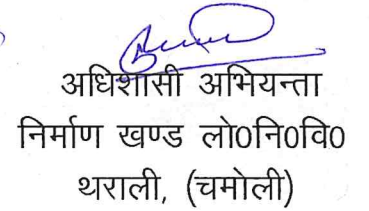 अधिशासी अभियन्ता
निर्माण खण्ड लो0नि0वि0
थराली, (चमोली)